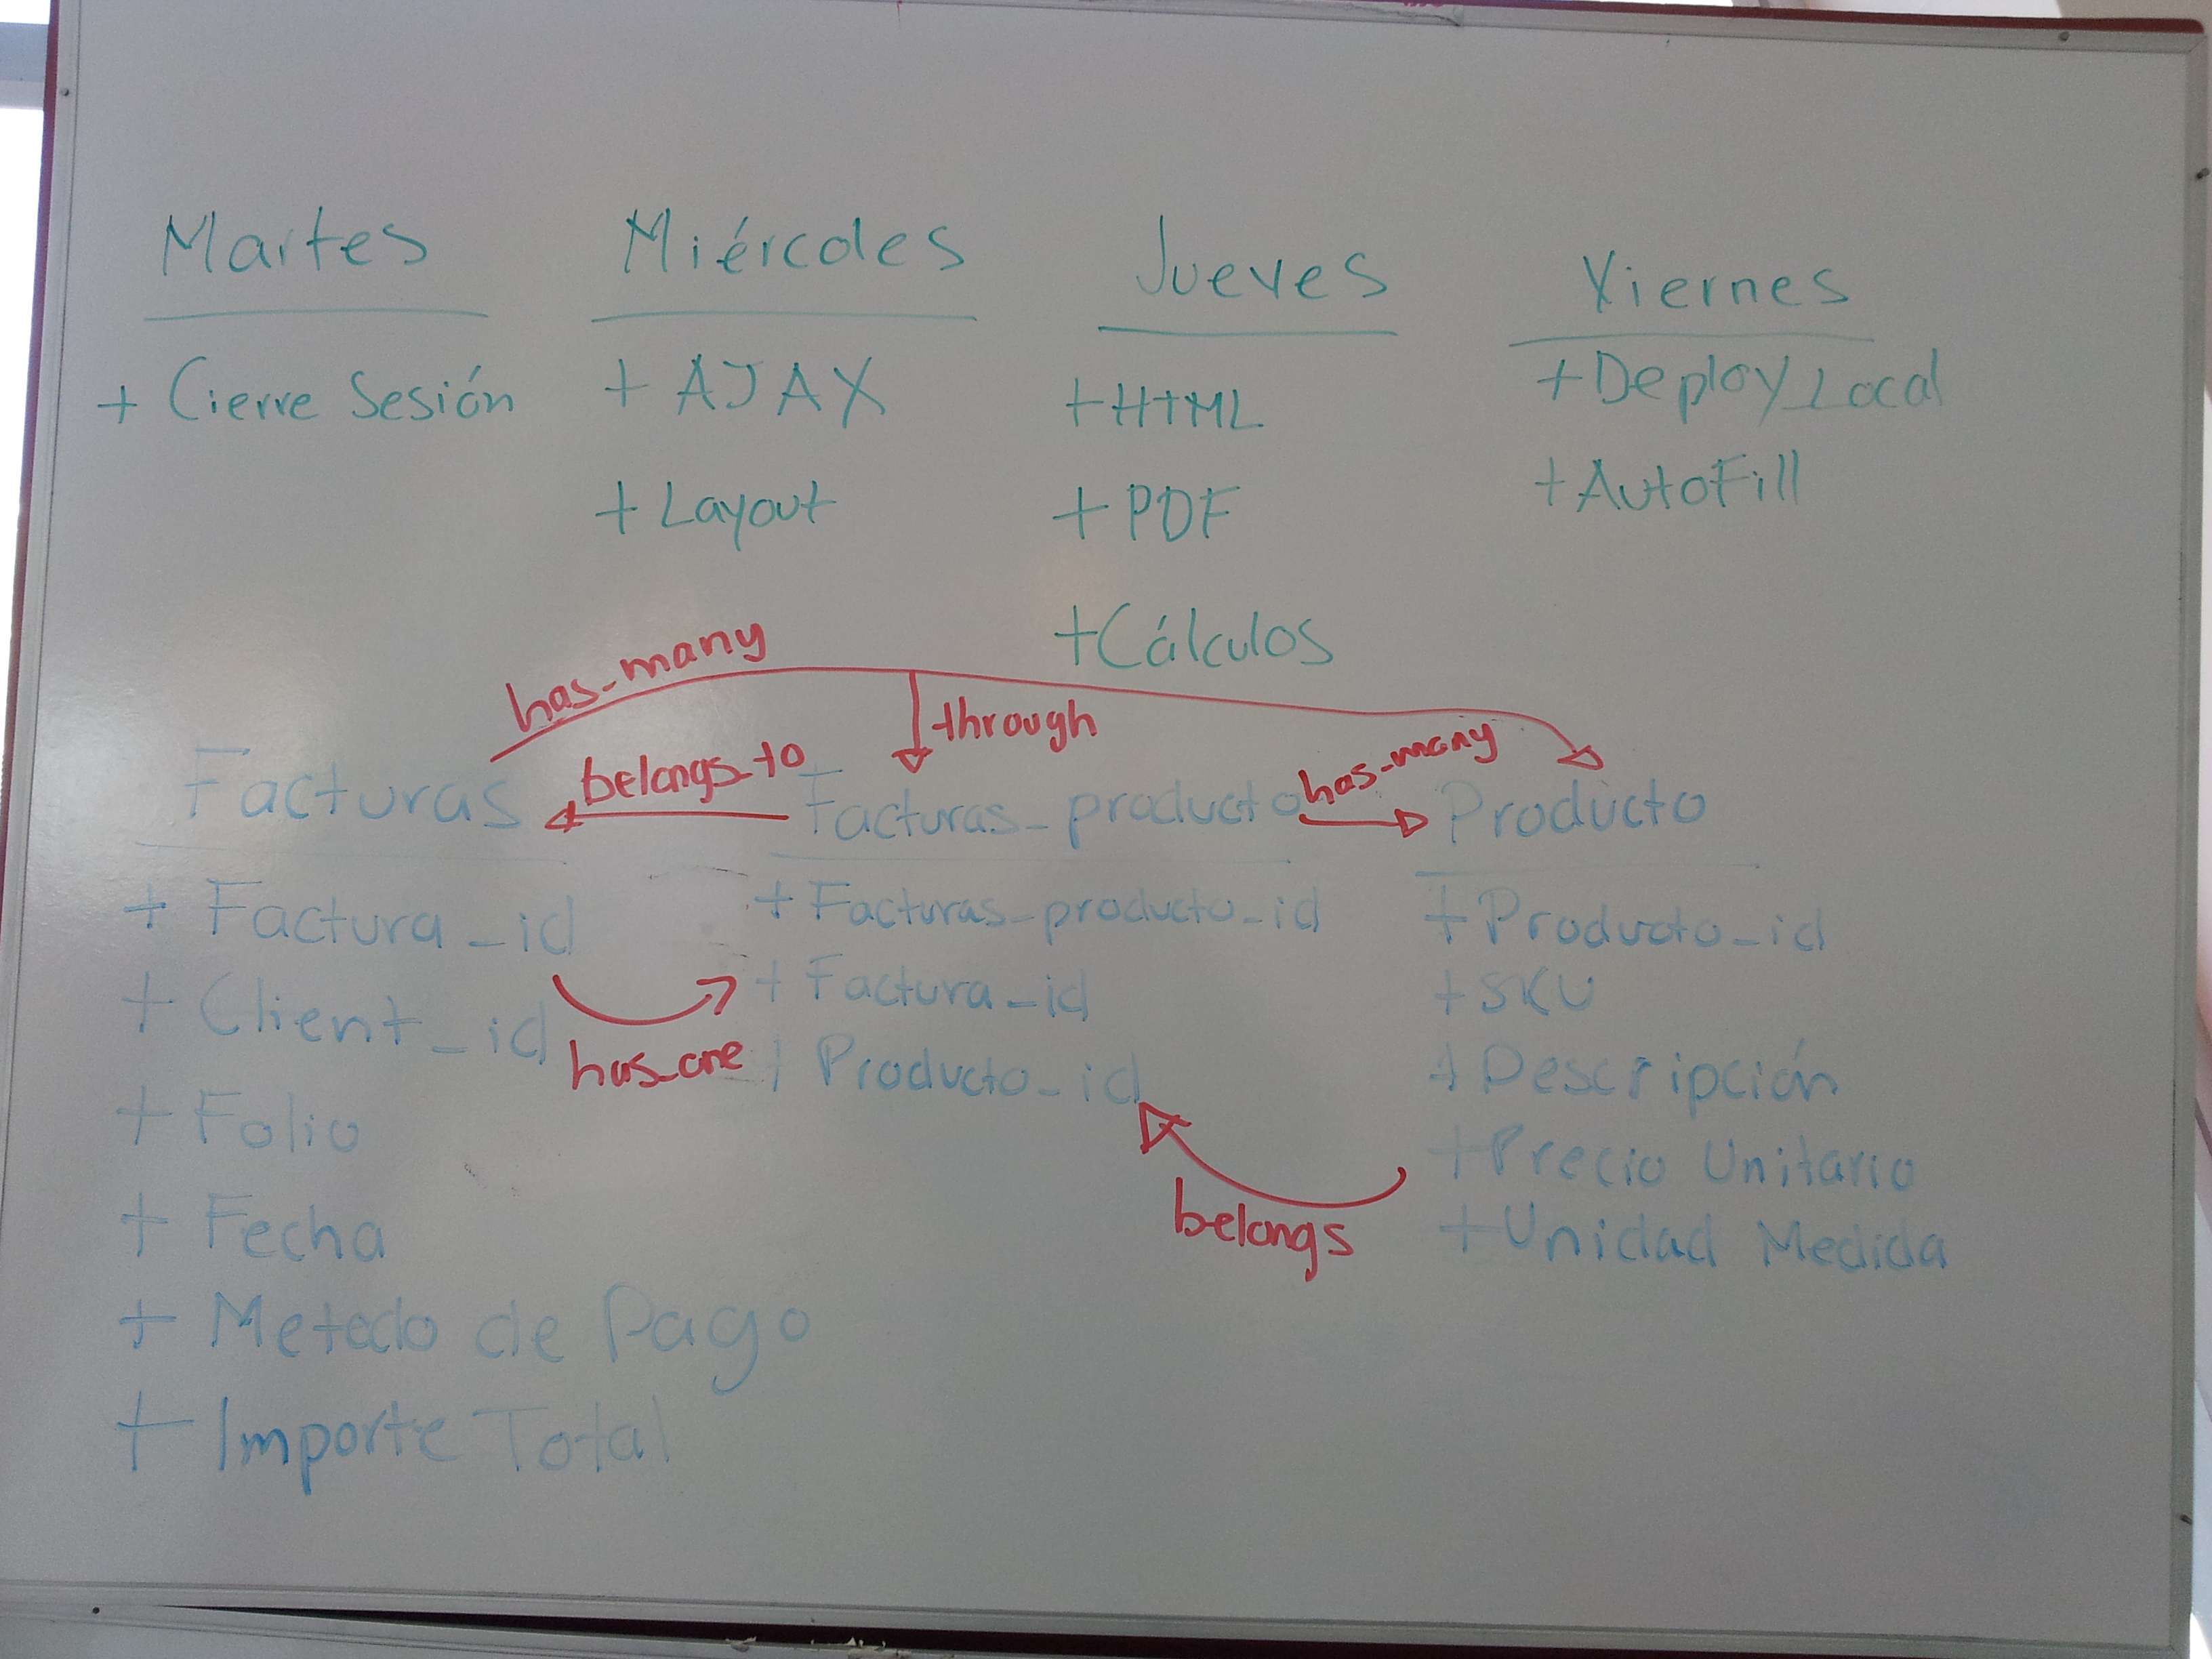 Martes
+ Cierre Sesión
Miércoles
+ AJAX
+ Layout
Jueves
+ HTML
+ PDF
+ Cálculos
Viernes
+ Deploy_Local
+ AutoFill
has_many
through
belongs_to
has_many
Facturas
+ Factura_id
+ Client_id
+ Folio
+ Fecha
+ Metodo de Pago
+ Importe Total
has_one
Facturas_producto
+ Facturas_producto_id
+ Factura_id
+ Producto_id
belongs
Producto
+ Producto_id
+ SKU
+ Descripción
+ Precio Unitario
+ Unidad Medida